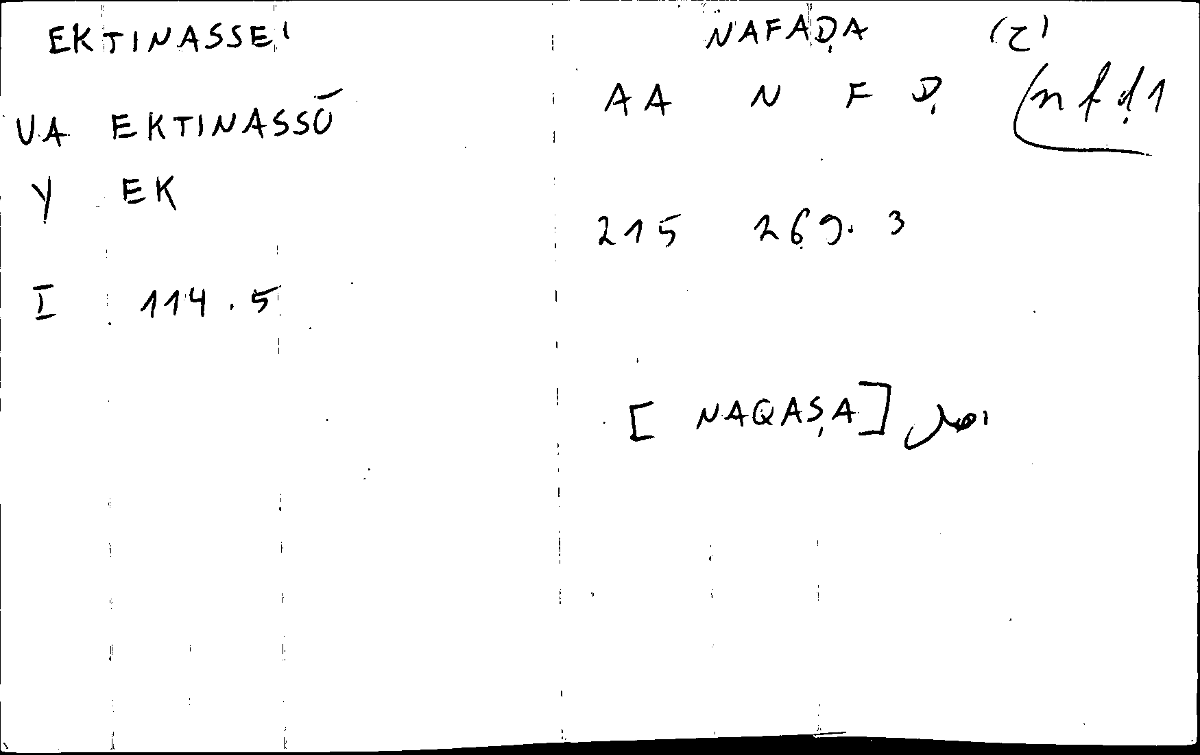 EKTINASSEI NAFAḌA (2)
UA EKTINASSŌ AA N F Ḍ nfḍ1
Y EK
215 269.3
I 114.5
[NAQAṢA] اصل